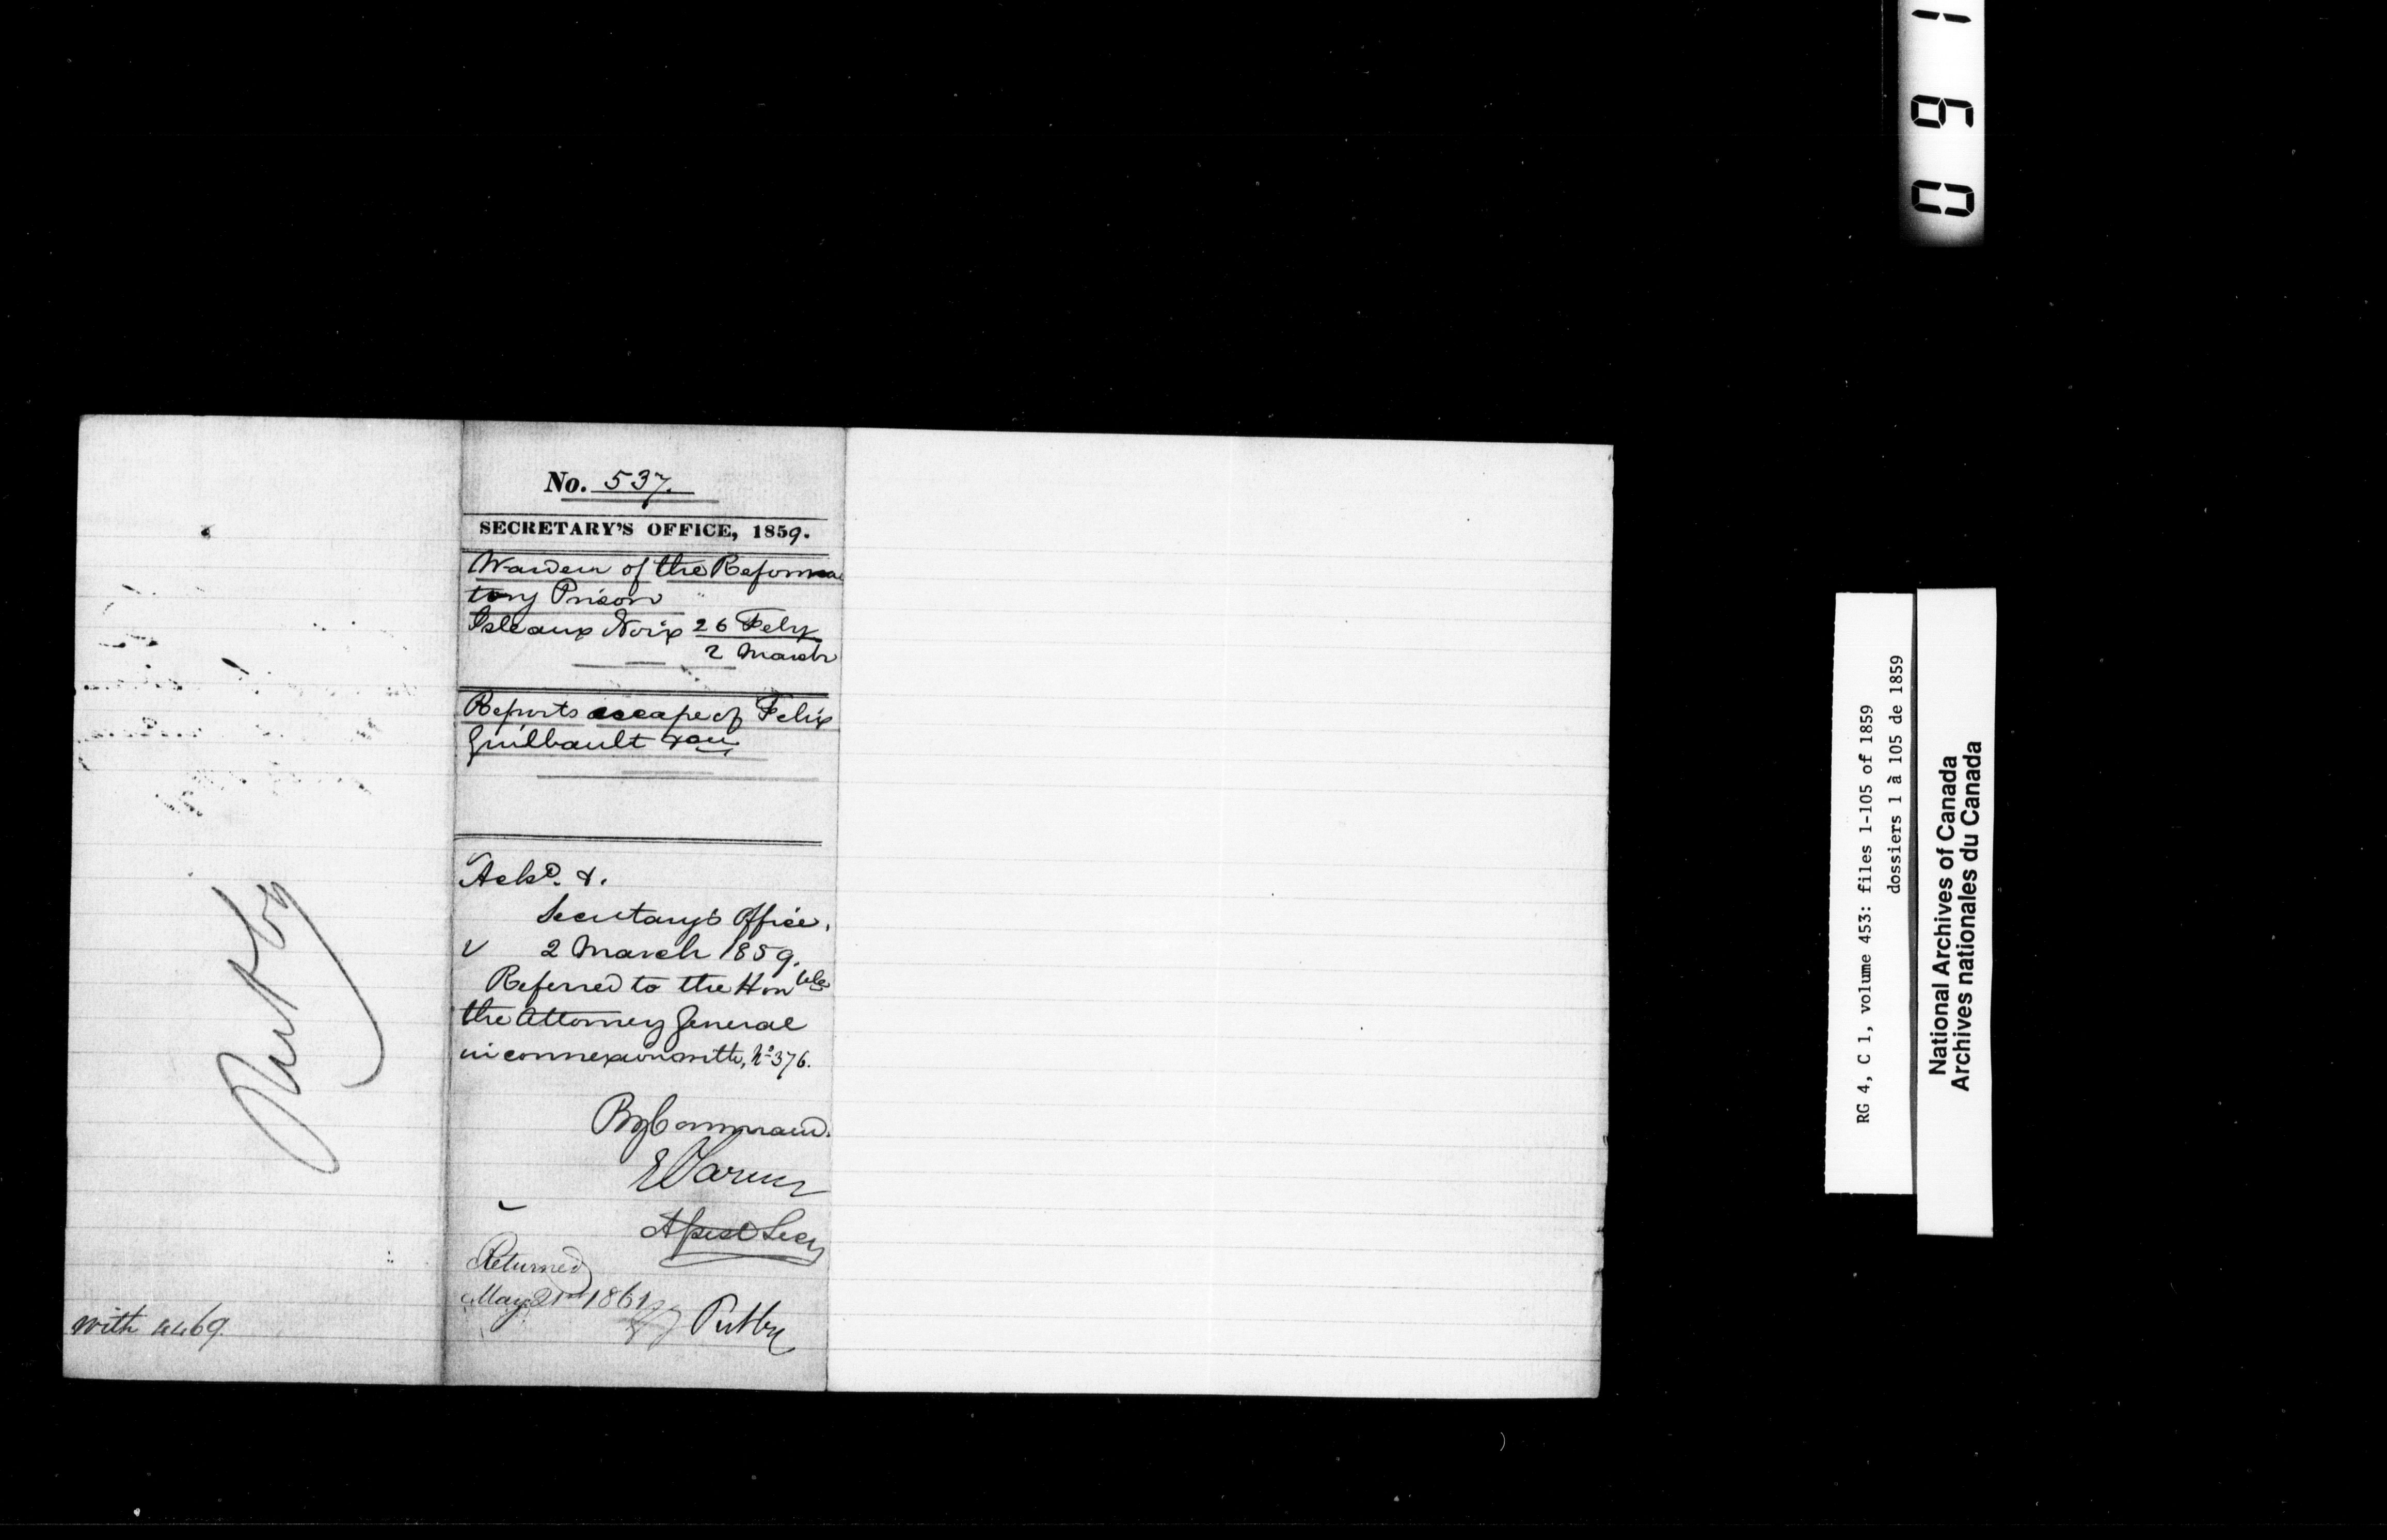 No. 537.
SECRETARY'S OFFICE, 1859.
Warden of the Reforma
tory Prison
Isle aux Noix 26 Feby
2 March
Reports escape of Felix
Guilbault
Ackd. &.
Secretary's Office,
2 March 1859.
Referred to the Honble
the Attorney General
in connexion with, No 376.
By Command.
E Parent
Asst Secy
Returned
May 21st 1861
Put by
Put by
with 4469
091
RG 4, C 1, volume 453: files 1-105 of 1859
dossiers 1 à 105 de 1859
National Archives of Canada
Archives nationales du Canada